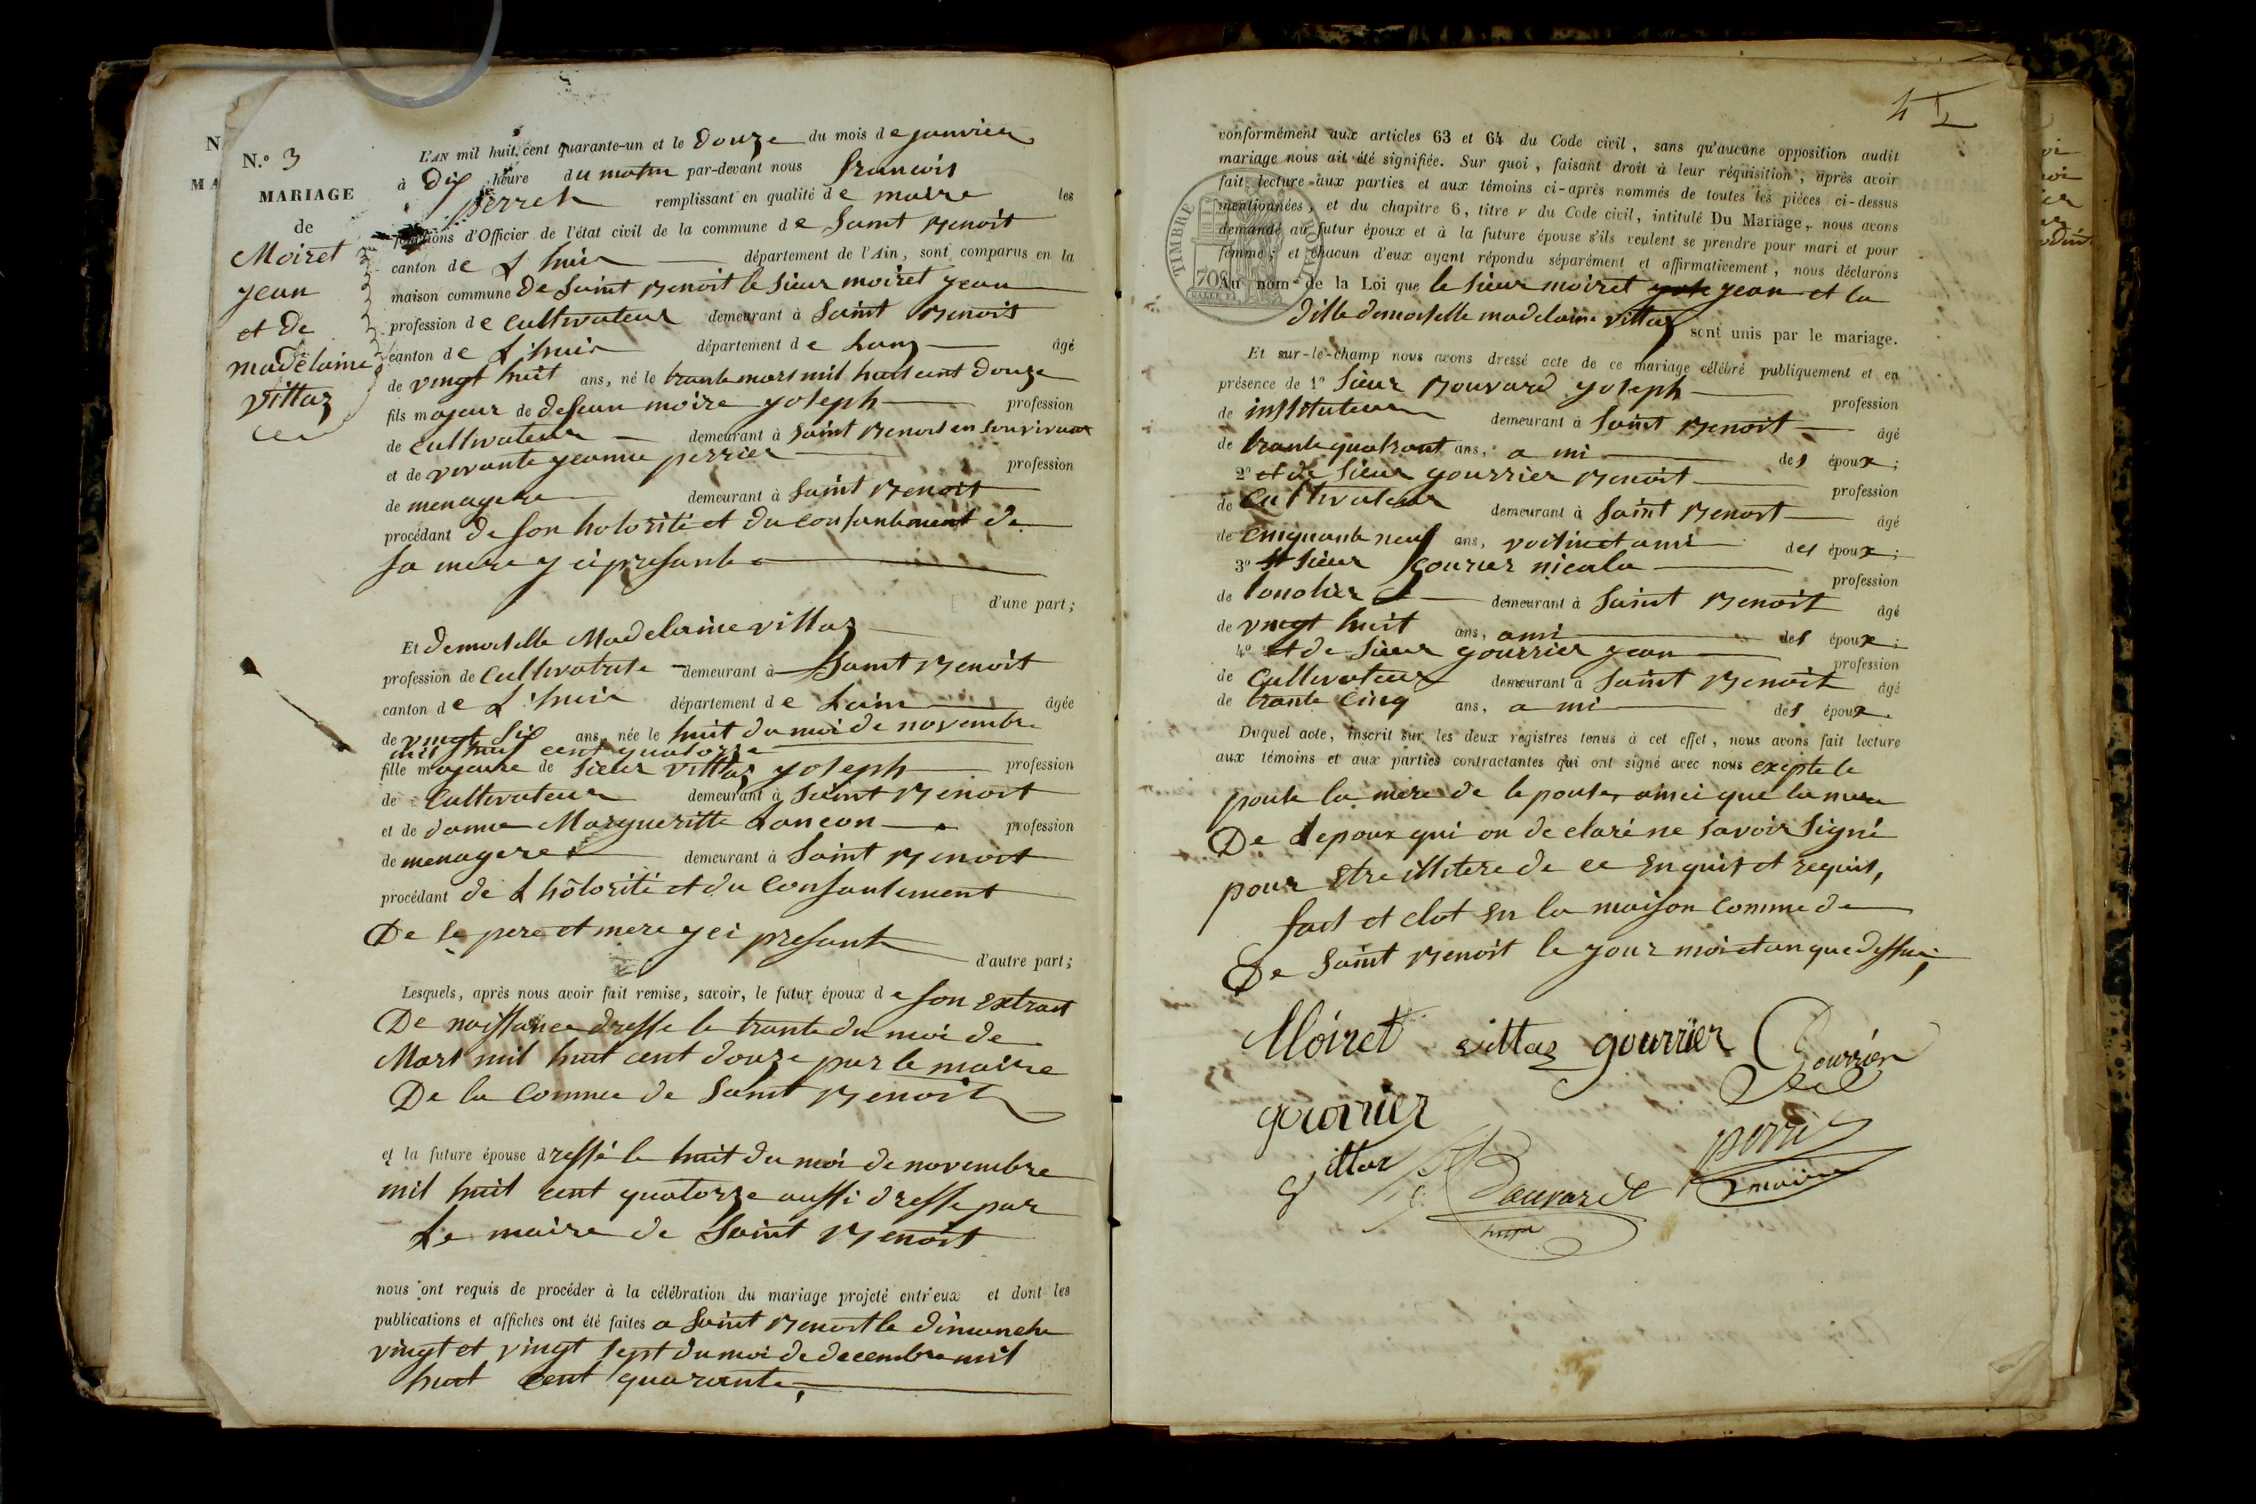 N.º 3
MARIAGE
de
Moiret
jean
et de
madelaine
Vittaz
L'AN mil huit cent quarante-un et le douze du mois de janvier
à dix heure du matin par-devant nous francois
perret remplissant en qualité de maire les
fonctions d'Officier de l'état civil de la commune de Saint Benoit
canton de L'huis département de l'Ain, sont comparus en la
maison commune de Saint Benoit le Sieur moiret jean
profession de Cultivateur demeurant à Saint Benoit
canton de L'huis département de Lain âgé
de vingt huit ans, né le trante mars mil huit cent douze
fils majeur de defeun moire joseph profession
de Cultivateur demeurant à Saint Benoit en sonvivant
et de vivante jeanne perrier profession
de menagere demeurant à Saint Benoit
procédant de son hotorité et du consantement de
sa mere y ci presante
d'une part;
Et demoiselle Madelaine vittaz
profession de Cultivatrise demeurant à Saint Benoit
canton de L'huis département de Lain âgée
de vingt Six ans, née le huit du moi de novembre
mil huit cent quatorze
fille majeure de Sieur Vittaz joseph profession
de Cultivateur demeurant à Saint Benoit
et de dame Margueritte Lancon profession
de menagere demeurant à Saint Benoit
procédant de L hôtorité et du Consantement
De Se pere et mere y ci presant
d'autre part;
Lesquels, après nous avoir fait remise, savoir, le futur époux de son Extrait
De naissance dresse le trante du moi de
Mars mil huit cent douze par le maire
De la Commue de Saint Benoit
et la future épouse dressé le huit du moi de novembre
mil huit cent quatorze aussi dresse par
Le maire de Saint Benoit
nous ont requis de procéder à la célébration du mariage projeté entr'eux et dont les
publications et affiches ont été faites a Saint Benoit le dimanche
vingt et vingt sept du moi de decembre mil
huit cent quarante,
conformément aux articles 63 et 64 du Code civil, sans qu'aucune opposition audit
mariage nous ait été signifiée. Sur quoi, faisant droit à leur réquisition, après avoir
fait lecture aux parties et aux témoins ci-après nommés de toutes les pièces ci-dessus
mentionnées, et du chapitre 6, titre v du Code civil, intitulé Du Mariage, nous avons
demandé au futur époux et à la future épouse s'ils veulent se prendre pour mari et pour
femme; et chacun d'eux ayant répondu séparément et affirmativement, nous déclarons
Au nom de la Loi que le Sieur moiret jean et la
dille demoiselle madelaine vittaz sont unis par le mariage.
Et sur-le-champ nous avons dressé acte de ce mariage célébré publiquement et en
présence de 1º Sieur Bouvard joseph profession
de instituteur demeurant à Saint Benoit âgé
de trante quatre ans, a mi des époux;
2º et de Sieur gourrier Benoit profession
de Cultivateur demeurant à Saint Benoit âgé
de cinquante neuf ans, voisin et ami des époux;
3º Sieur gourier nicola profession
de tonolier demeurant à Saint Benoit âgé
de vingt huit ans, ami des époux;
4º et de Sieur gourrier jean profession
de Cultivateur demeurant à Saint Benoit âgé
de trante Cinq ans, a mi des époux.
Duquel acte, inscrit sur les deux registres tenus à cet effet, nous avons fait lecture
aux témoins et aux parties contractantes qui ont signé avec nous exepte le
pouse la mere de le pouse, ainci que la mere
De Lepoux qui on de claré ne savoir Signé
pour Etre illitere de ce Enquit et requit,
fait et clot En la maison Comme de
De Saint Benoit le jour moi et an que dessus,
Moiret vittaz gourrier Gourrier
gourrier
Vittaz Bouvard perret
maire
TIMBRE ROYAL
70c